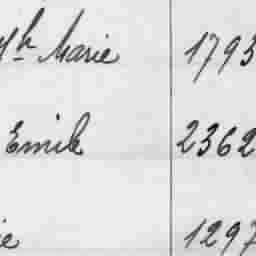 Mh Marie 1793
Emile 2362
ie 1297